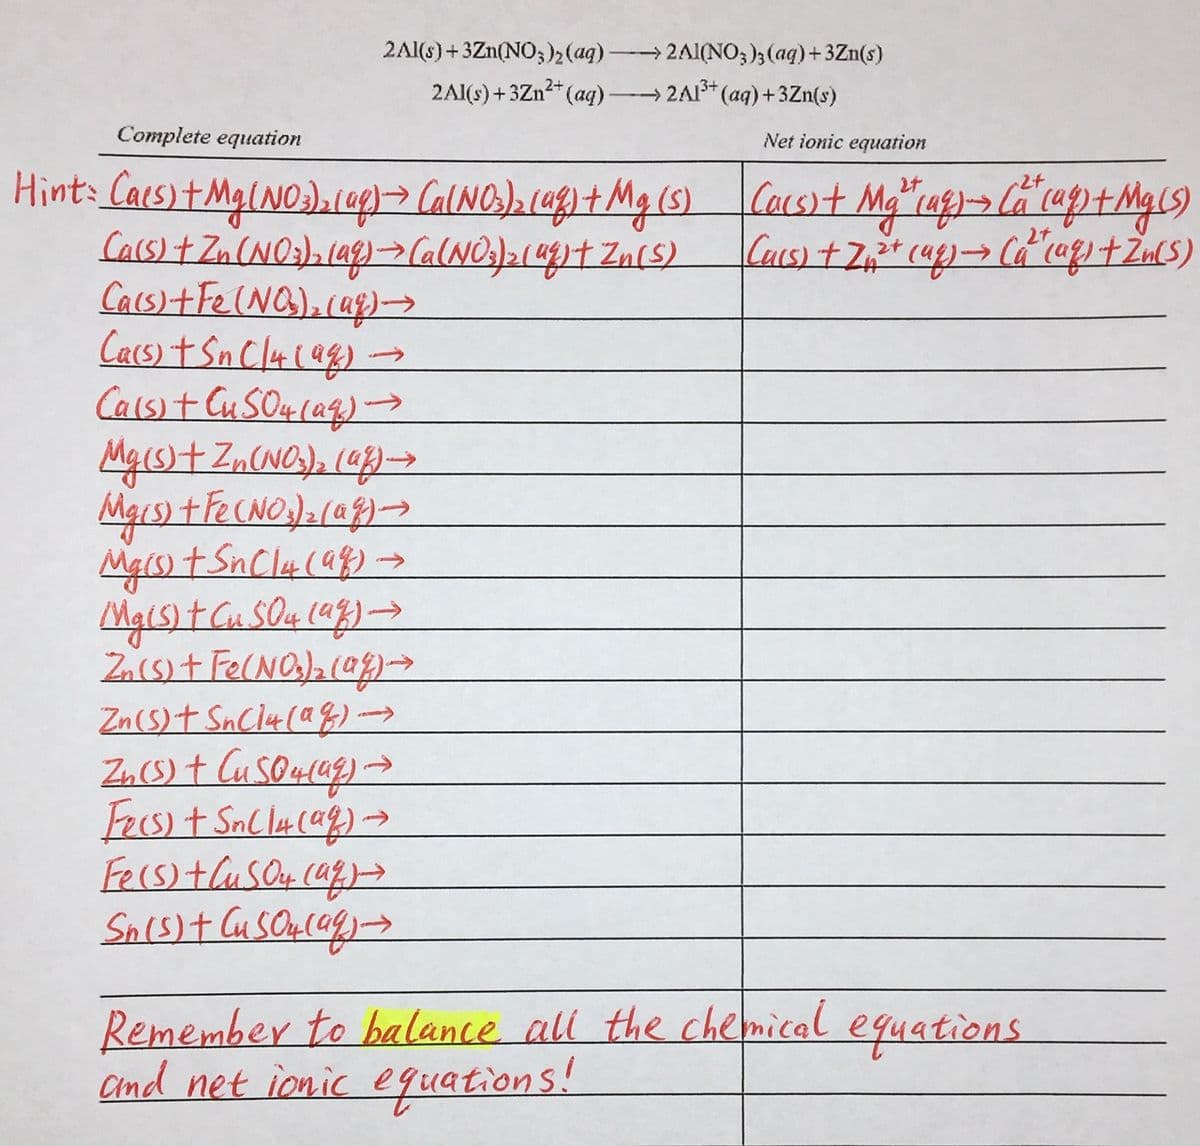 2Al(s)+3Zn(NO₃)₂(aq) ⟶ 2Al(NO₃)₃(aq)+3Zn(s)
2Al(s)+3Zn²⁺(aq) ⟶ 2Al³⁺(aq)+3Zn(s)
Complete equation Net ionic equation
Hint: Ca(s)+Mg(NO₃)₂(aq)→ Ca(NO₃)₂(aq)+Mg(s) Ca(s)+ Mg²⁺(aq)→Ca²⁺(aq)+Mg(s)
Ca(s)+Zn(NO₃)₂(aq)→Ca(NO₃)₂(aq)+Zn(s) Ca(s)+Zn²⁺(aq)→Ca²⁺(aq)+Zn(s)
Ca(s)+Fe(NO₃)₂(aq)→
Ca(s)+SnCl₄(aq)→
Ca(s)+CuSO₄(aq)→
Mg(s)+Zn(NO₃)₂(aq)→
Mg(s)+Fe(NO₃)₂(aq)→
Mg(s)+SnCl₄(aq)→
Mg(s)+CuSO₄(aq)→
Zn(s)+Fe(NO₃)₂(aq)→
Zn(s)+SnCl₄(aq)→
Zn(s)+CuSO₄(aq)→
Fe(s)+SnCl₄(aq)→
Fe(s)+CuSO₄(aq)→
Sn(s)+CuSO₄(aq)→
Remember to balance all the chemical equations
and net ionic equations!